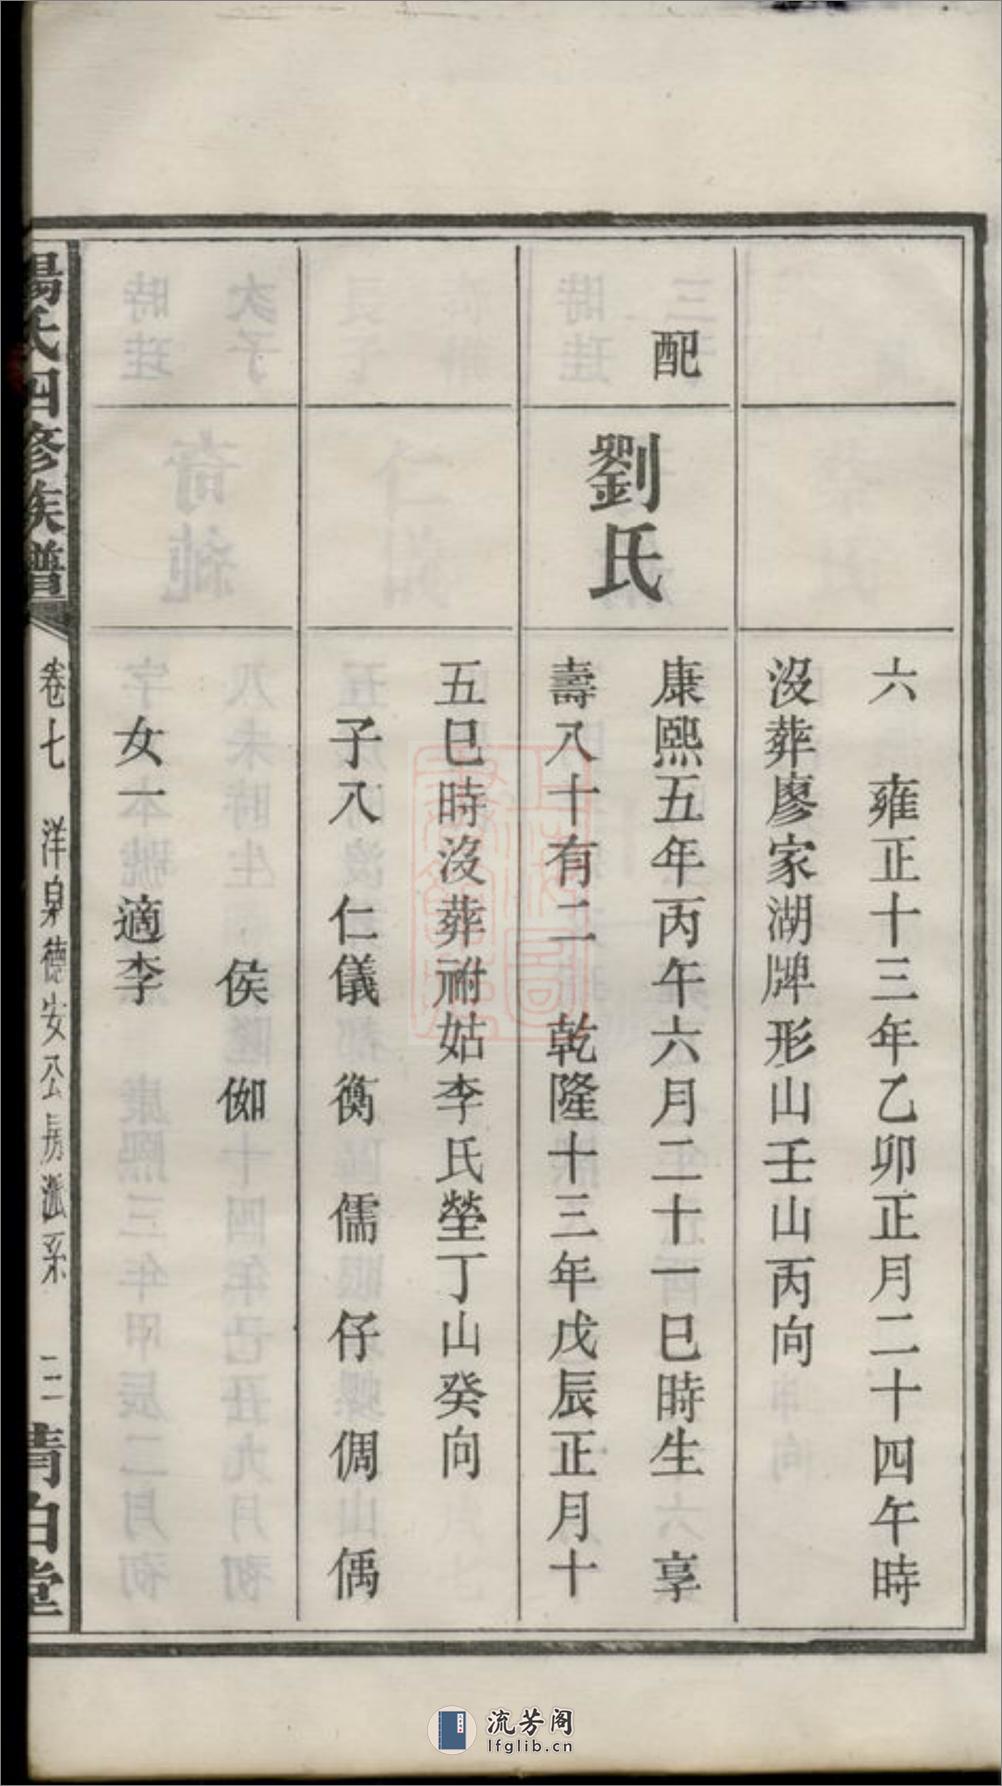 六　雍正十三年乙卯正月二十四午時
沒葬廖家湖牌形山壬山丙向
配
劉氏
康熙五年丙午六月二十一巳時生　享
壽八十有二　乾隆十三年戊辰正月十
五巳時沒葬祔姑李氏塋丁山癸向
子八　仁儀　衡　儒　仔　倜　偊
侯　伽
女一　適李
楊氏四修族譜
卷七　洋泉德安公房派系
二　清白堂
流芳阁
lfglib.cn